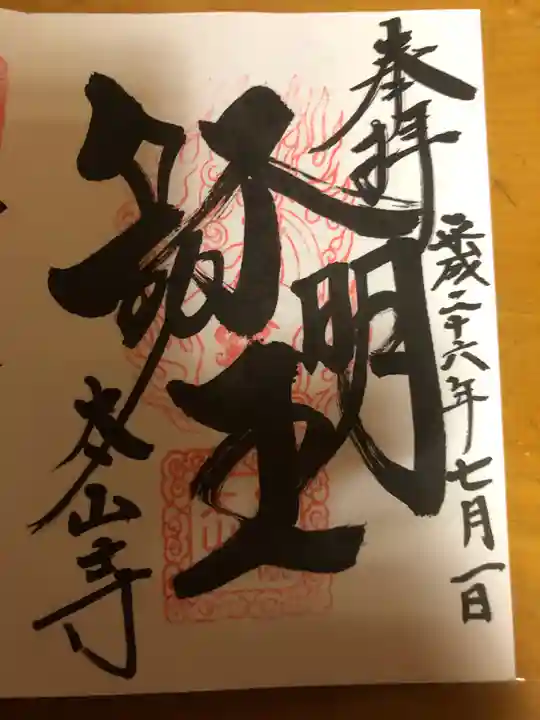 奉拝
平成二十六年七月一日
不動明王
山寺